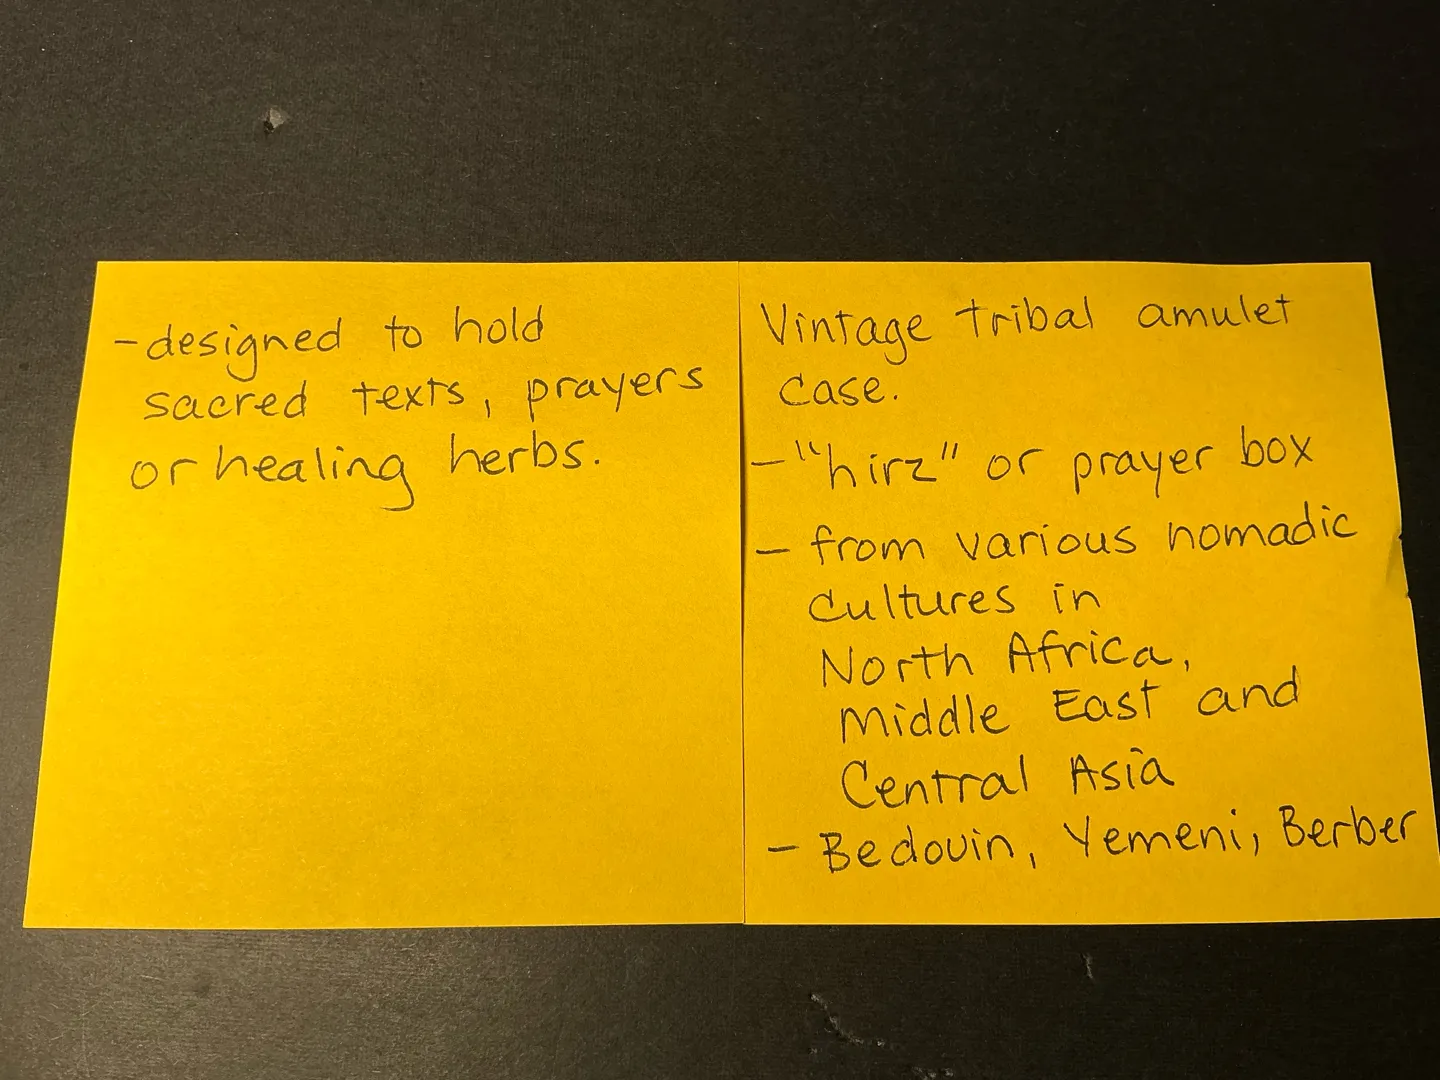 -designed to hold
sacred texts, prayers
or healing herbs.
Vintage tribal amulet
case.
- "hirz" or prayer box
- from various nomadic
cultures in
North Africa,
Middle East and
Central Asia
- Bedouin, Yemeni, Berber